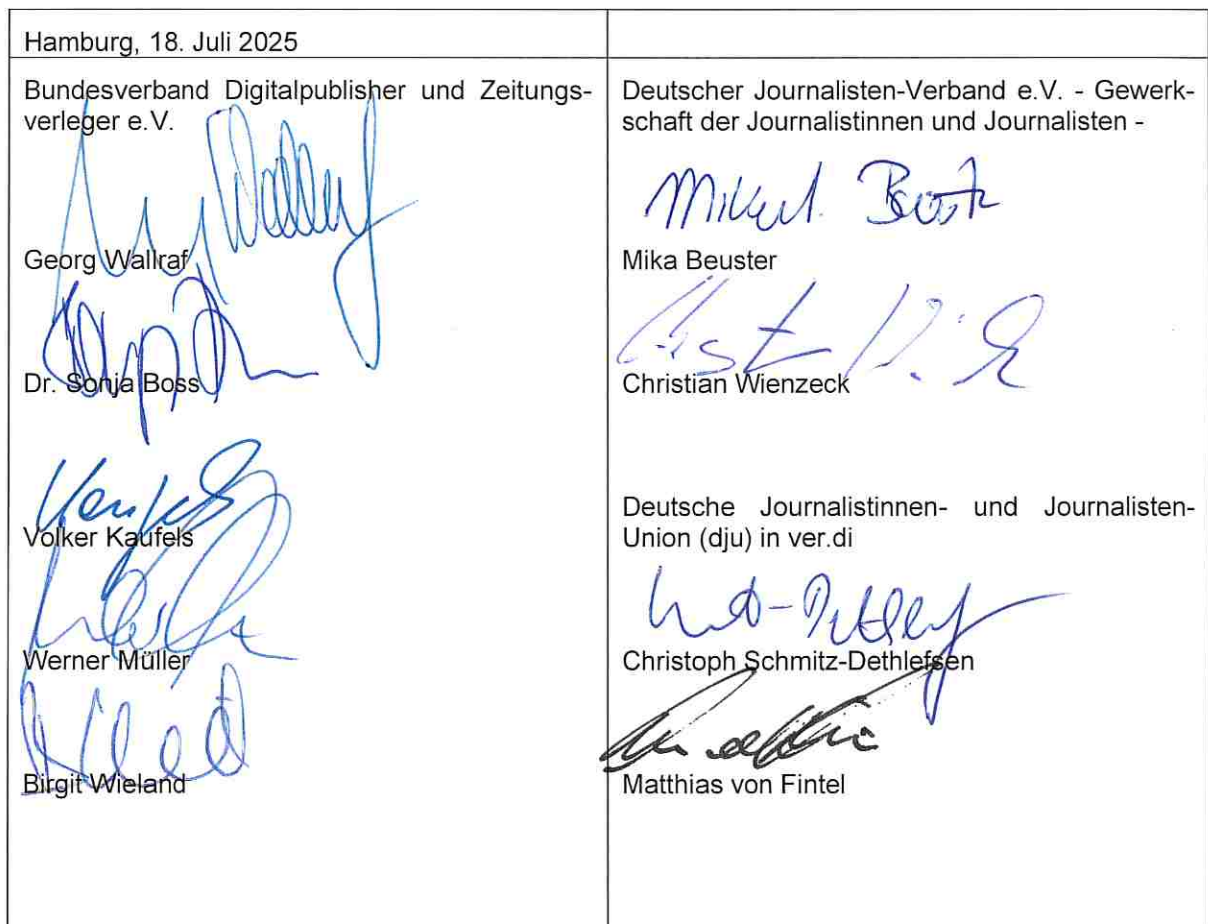 Hamburg, 18. Juli 2025
Bundesverband Digitalpublisher und Zeitungs-
verleger e.V.
Georg Wallraf
Dr. Sonja Boss
Volker Kaufels
Werner Müller
Birgit Wieland
Deutscher Journalisten-Verband e.V. - Gewerk-
schaft der Journalistinnen und Journalisten -
Mika Beuster
Christian Wienzeck
Deutsche Journalistinnen- und Journalisten-
Union (dju) in ver.di
Christoph Schmitz-Dethlefsen
Matthias von Fintel